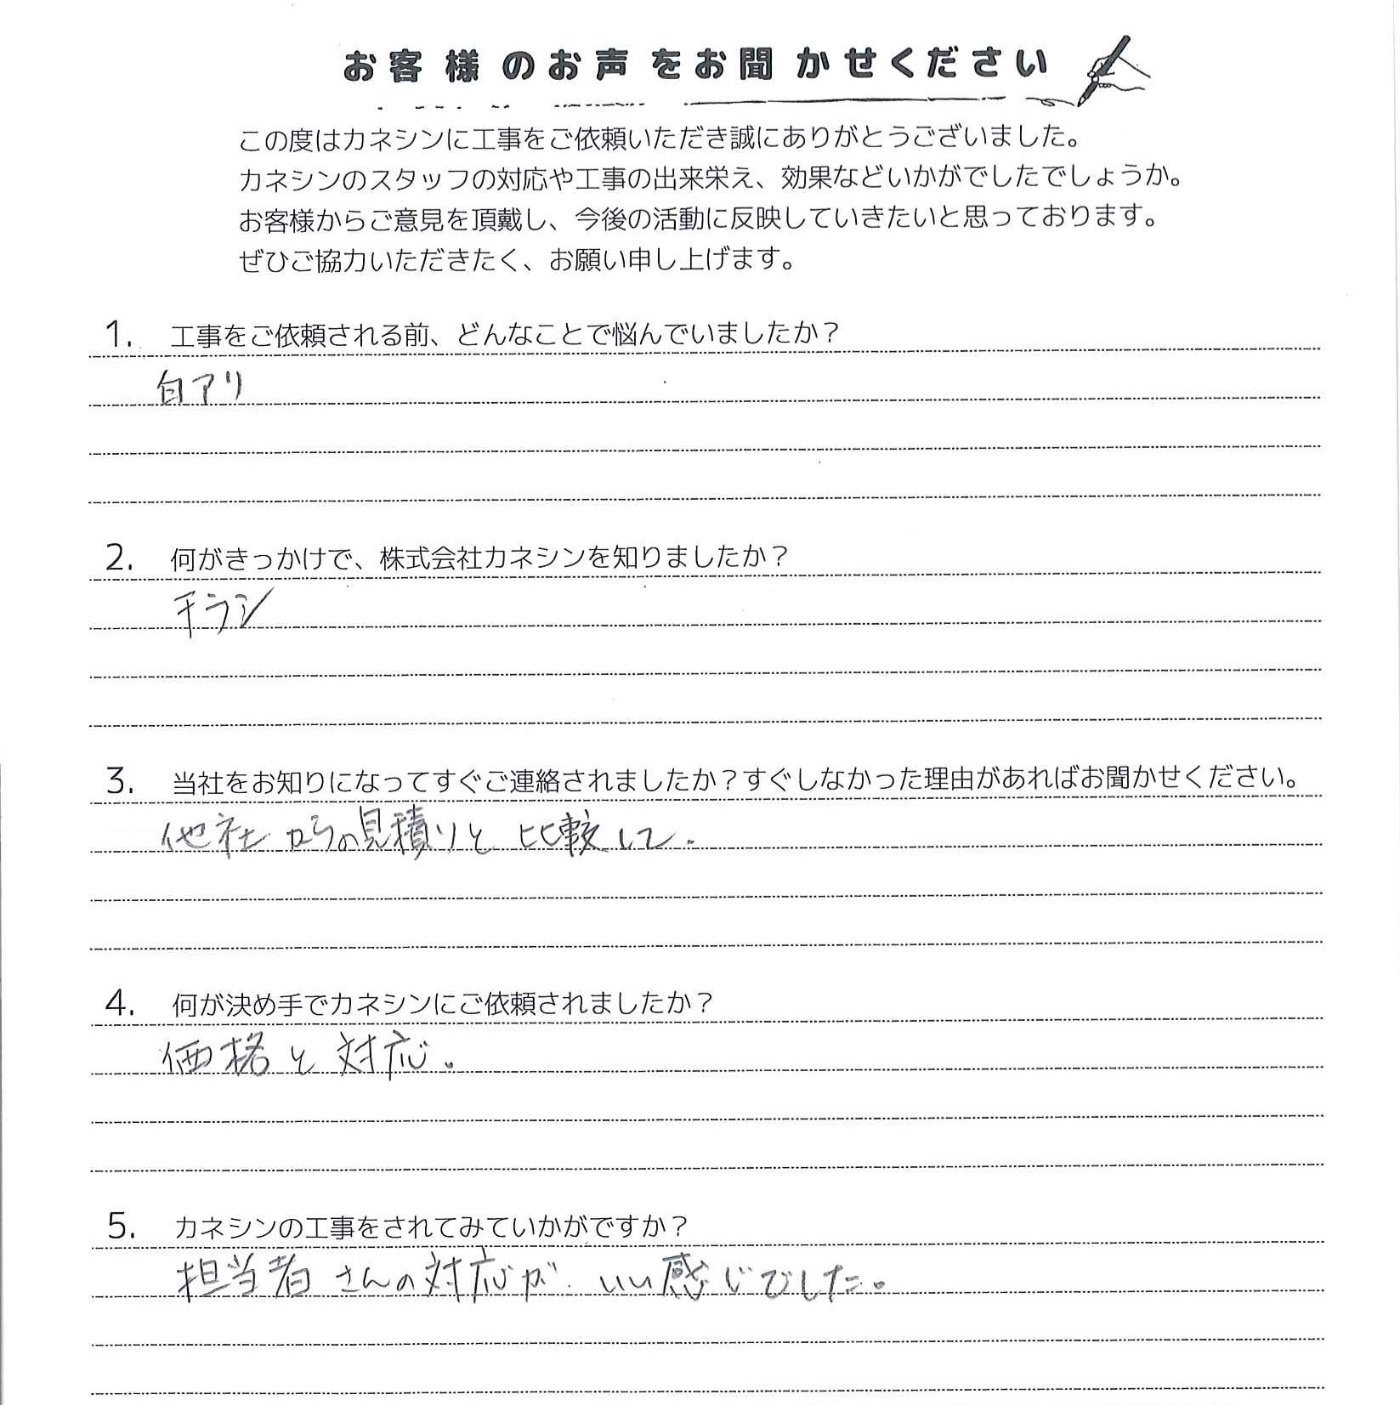 お客様のお声をお聞かせください
この度はカネシンに工事をご依頼いただき誠にありがとうございました。
カネシンのスタッフの対応や工事の出来栄え、効果などいかがでしたでしょうか。
お客様からご意見を頂戴し、今後の活動に反映していきたいと思っております。
ぜひご協力いただきたく、お願い申し上げます。
1. 工事をご依頼される前、どんなことで悩んでいましたか？
白アリ
2. 何がきっかけで、株式会社カネシンを知りましたか？
チラシ
3. 当社をお知りになってすぐご連絡されましたか？すぐしなかった理由があればお聞かせください。
他社からの見積りと比較して.
4. 何が決め手でカネシンにご依頼されましたか？
価格と対応。
5. カネシンの工事をされてみていかがですか？
担当者さんの対応がいい感じでした。